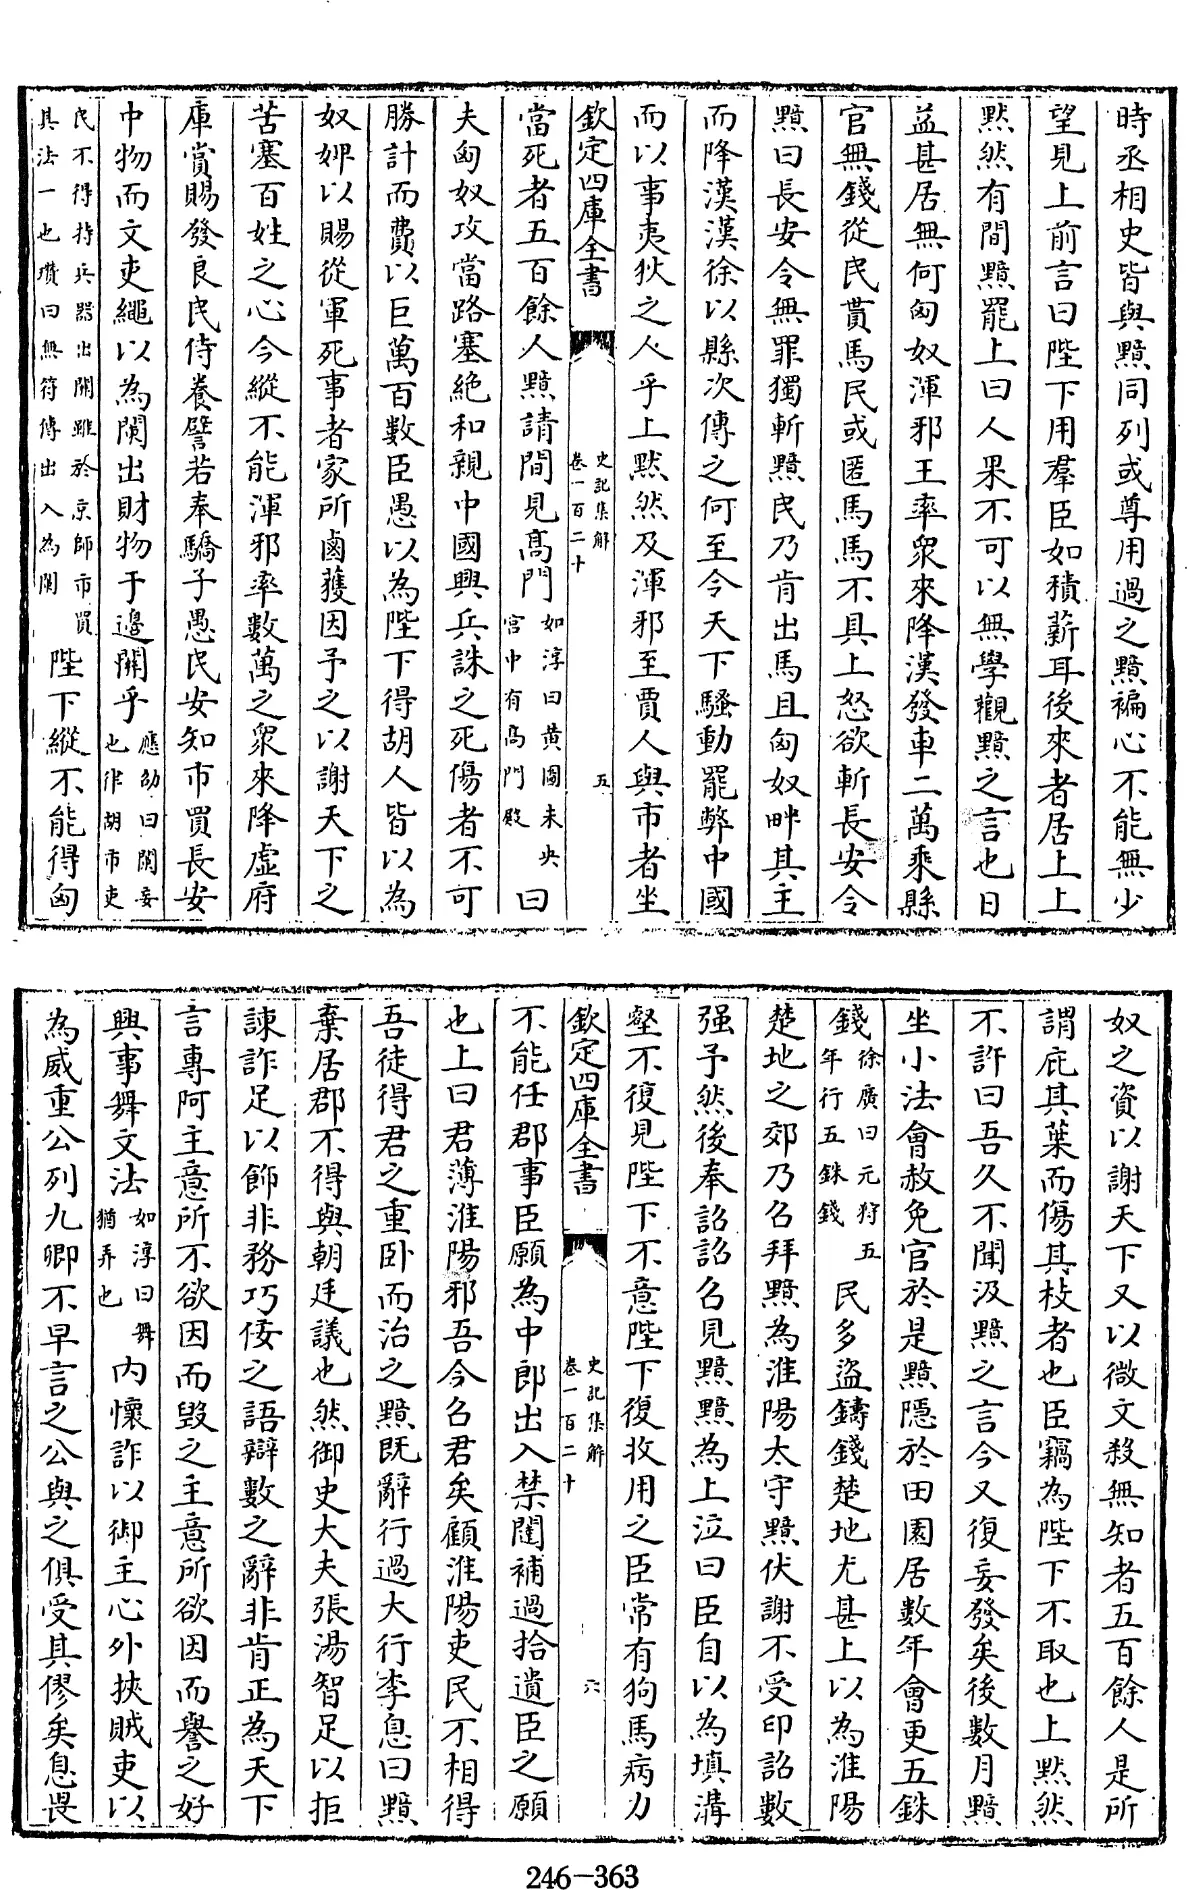 時丞相史皆與黯同列或尊用過之黯褊心不能無少
望見上前言曰陛下用羣臣如積薪耳後來者居上上
黙然有間黯罷上曰人果不可以無學觀黯之言也日
益甚居無何匈奴渾邪王率衆來降漢發車二萬乘縣
官無錢從民貰馬民或匿馬馬不具上怒欲斬長安令
黯曰長安令無罪獨斬黯民乃肯出馬且匈奴畔其主
而降漢漢徐以縣次傳之何至令天下騷動罷弊中國
而以事夷狄之人乎上黙然及渾邪至賈人與市者坐
欽定四庫全書
史記集解
卷一百二十
五
當死者五百餘人黯請間見髙門如淳曰黄圖未央宫中有髙門殿曰
夫匈奴攻當路塞絶和親中國興兵誅之死傷者不可
勝計而費以巨萬百數臣愚以為陛下得胡人皆以為
奴婢以賜從軍死事者家所鹵獲因予之以謝天下之
苦塞百姓之心今縱不能渾邪率數萬之衆來降虚府
庫賞賜發良民侍養譬若奉驕子愚民安知市買長安
中物而文吏繩以為闌出財物于邊關乎應劭曰闌妄也律胡市吏
民不得持兵器出關雖於京師市買其法一也瓚曰無符傳出入為闌陛下縱不能得匈
奴之資以謝天下又以微文殺無知者五百餘人是所
謂庇其葉而傷其枝者也臣竊為陛下不取也上黙然
不許曰吾久不聞汲黯之言今又復妄發矣後數月黯
坐小法會赦免官於是黯隱於田園居數年會更五銖
錢徐廣曰元狩五年行五銖錢民多盜鑄錢楚地尤甚上以為淮陽
楚地之郊乃召拜黯為淮陽太守黯伏謝不受印詔數
强予然後奉詔詔召見黯黯為上泣曰臣自以為填溝
壑不復見陛下不意陛下復收用之臣常有狗馬病力
欽定四庫全書
史記集解
卷一百二十
六
不能任郡事臣願為中郎出入禁闥補過拾遺臣之願
也上曰君薄淮陽邪吾今召君矣顧淮陽吏民不相得
吾徒得君之重卧而治之黯既辭行過大行李息曰黯
棄居郡不得與朝廷議也然御史大夫張湯智足以拒
諫詐足以飾非務巧佞之語辯數之辭非肯正為天下
言專阿主意所不欲因而毁之主意所欲因而譽之好
興事舞文法如淳曰舞猶弄也内懷詐以御主心外挾賊吏以
為威重公列九卿不早言之公與之俱受其僇矣息畏
246-363